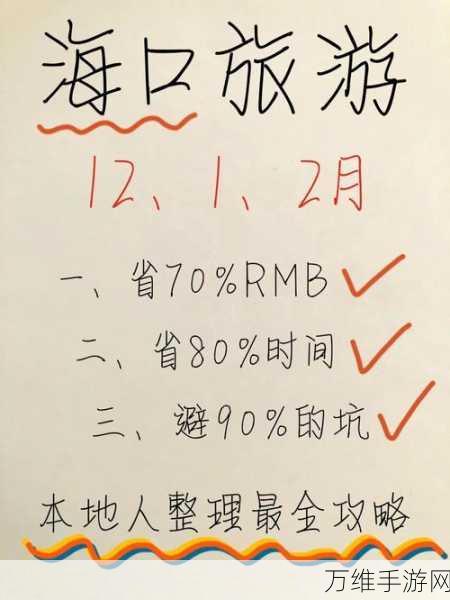 海口旅游
12、1、2月
一、省70%RMB
二、省80%时间
三、避90%的坑
本地人整理最全攻略
万维手游网